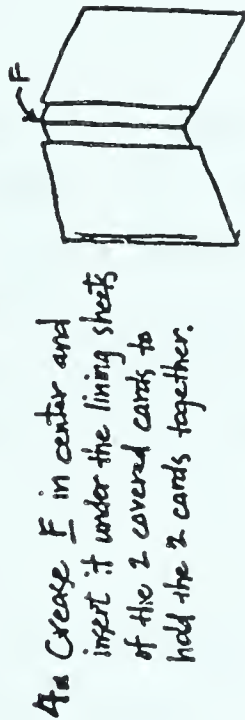 4. Crease F in center and
insert it under the lining sheets
of the 2 covered cards to
hold the 2 cards together.
F